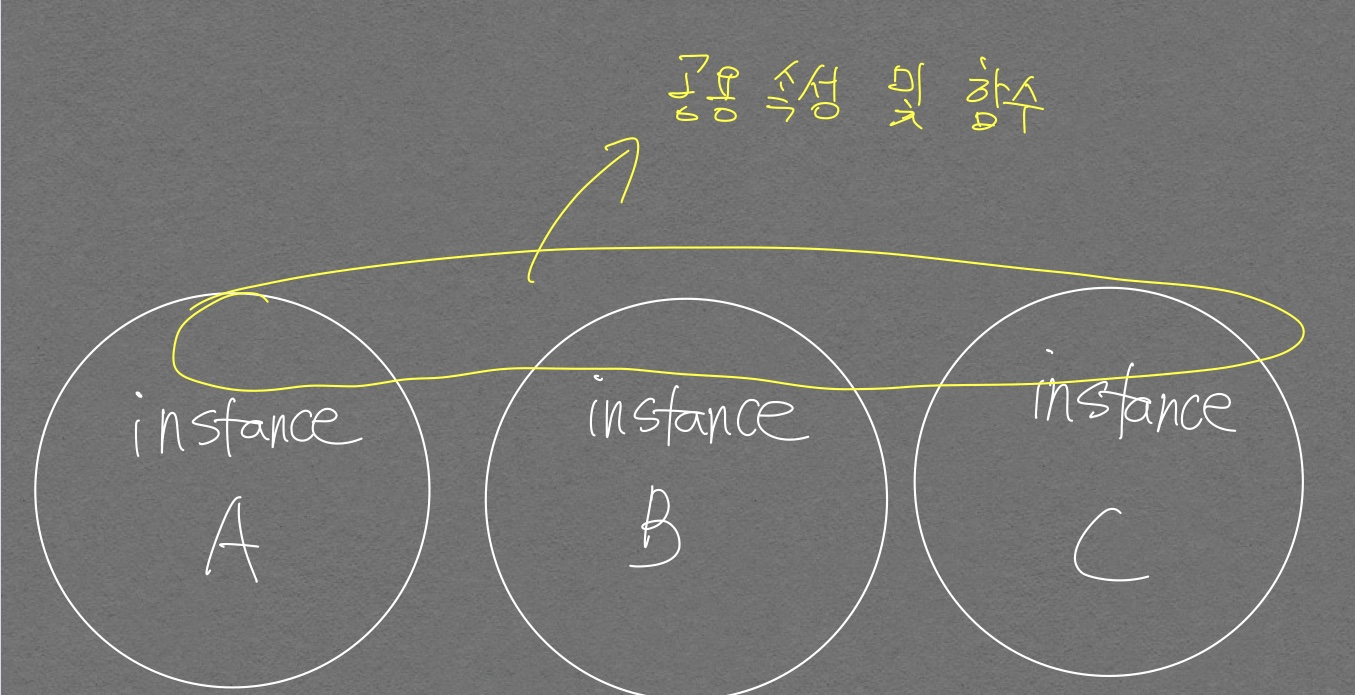 공용 속성 및 함수
instance
A
instance
B
instance
C